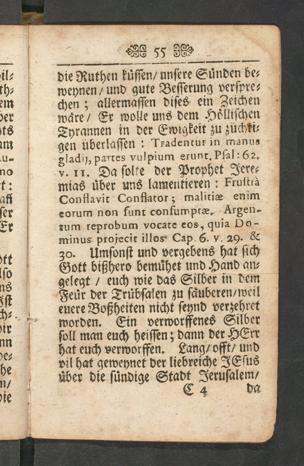 55
die Ruthen küssen/ unsere Sünden be-
weynen/ und gute Besserung verspre-
chen; allermassen dises ein Zeichen
wäre/ Er wolle uns dem Höllischen
Tyrannen in der Ewigkeit zu züchti-
gen überlassen: Tradentur in manus
gladij, partes vulpium erunt. Psal: 62.
v. 11. Da solte der Prophet Jere-
mias über uns lamentieren: Frustrà
Conflavit Conflator; malitiæ enim
eorum non sunt consumptæ. Argen-
tum reprobum vocate eos, quia Do-
minus projecit illos Cap. 6. v. 29. &
30. Umsonst und vergebens hat sich
Gott bißhero bemühet und Hand an-
gelegt/ euch wie das Silber in dem
Feür der Trübsalen zu säuberen/ weil
euere Boßheiten nicht seynd verzehret
worden. Ein verworffenes Silber
soll man euch heissen; dann der HErr
hat euch verworffen. Lang/ offt/ und
vil hat geweynet der liebreiche JEsus
über die sündige Stadt Jerusalem/
C 4 da